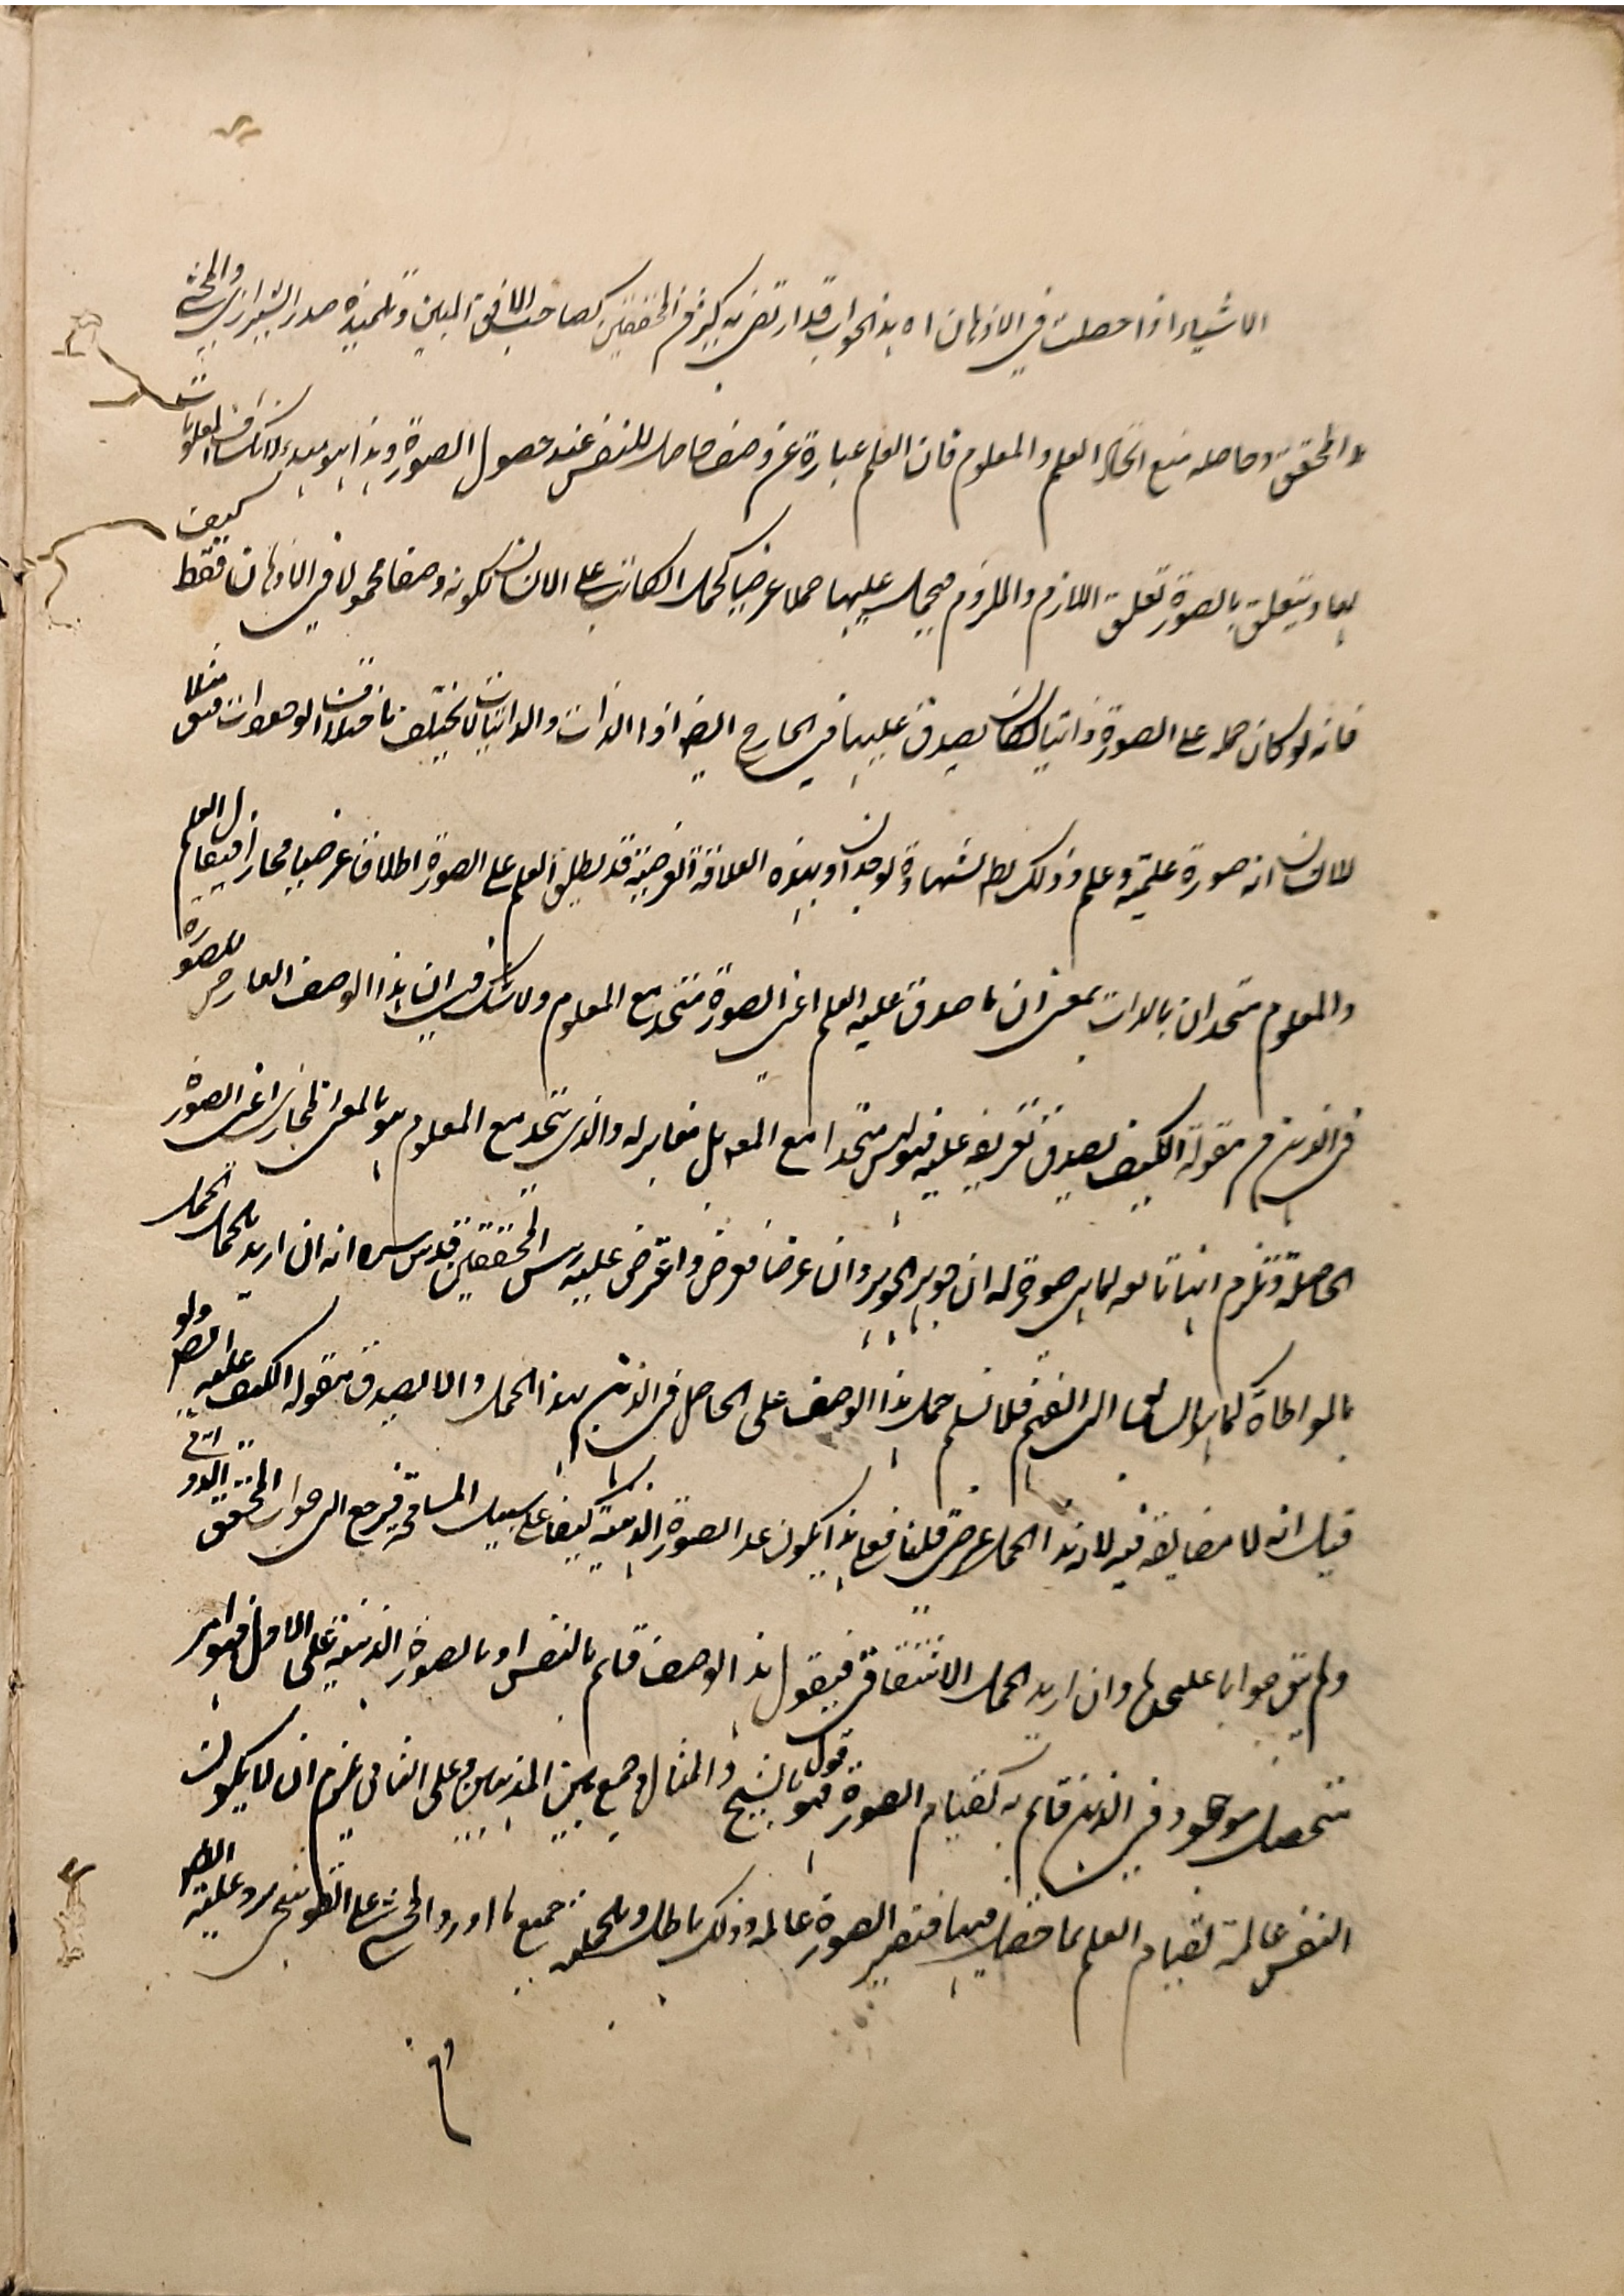 الاشياء اذا حصلت في الاذهان اه هذا الجواب قد ارتضى به كثير من المحققين كصاحب الافق المبين وتلميذه صدر الشيرازي والمحشي
المحقق وحاصله منع اتحاد العلم والمعلوم فان العلم عبارة عن وصف حاصل للنفس عند حصول الصورة وهذا هو مبدء لانكشاف المعلومات
كيف بها ويتعلق بالصورة تعلق اللازم والملزوم فيحمل عليها حملا عرضيا كحمل الكاتب على الانسان لكونه وصفا محمولا في الاذهان فقط
فانه لو كان حمله على الصورة ذاتيا لكان يصدق عليها في الخارج ايضا اذا الذات والذاتيات لا تختلف باختلاف الوجودات فيق مثلا
للانسان انه صورة علمية وعلم وذلك بط لشهادة الوجدان وبهذه العلاقة العرضية قد يطلق العلم على الصورة اطلاقا عرضيا مجازا فيقال العلم
والمعلوم متحدان بالذات بمعنى ان ما صدق عليه العلم اعني الصورة متحد مع المعلوم ولا شك في ان هذا الوصف العارض للصورة
في الذهن من مقولة الكيف لصدق تعريفه عليه فهو ليس متحدا مع المعلوم بل مغاير له والذي يتحد مع المعلوم هو بالمعنى المجازي اعني الصورة
الحاصلة وتلزم انها تابعة لما هي صورة له ان جوهرا فجوهر وان عرضا فعرض واعترض عليه رئيس المحققين قدس سره انه ان اريد بالحمل الحمل
بالمواطاة كما هو السابق الى الفهم فلا نسلم حمل هذا الوصف على الحاصل في الذهن بهذا الحمل والا لصدق مقولة الكيف عليه ايضا ولو
قيل انه لا مضايقة فيه لان هذا الحمل عرضي قلنا فعلى هذا يكون عد الصورة الذهنية كيفا على سبيل المسامحة فيرجع الى جواب المحقق الدواني
ولم يبق جوابا عليحدة وان اريد الحمل الاشتقاقي فيقول هذا الوصف قائم بالنفس او بالصورة الذهنية على الاول فهو امر
متحصل موجود في الذهن قائم به كقيام الصورة فهو قول بالشبح والمثال وجمع بين المذهبين وعلى الثاني يلزم ان لا يكون
النفس عالمة لقيام العلم بما حصل فيها فتصير الصورة عالمة وذلك باطل وبالجملة جميع ما اورد المحشي على القوشجي يرد عليه ايضا